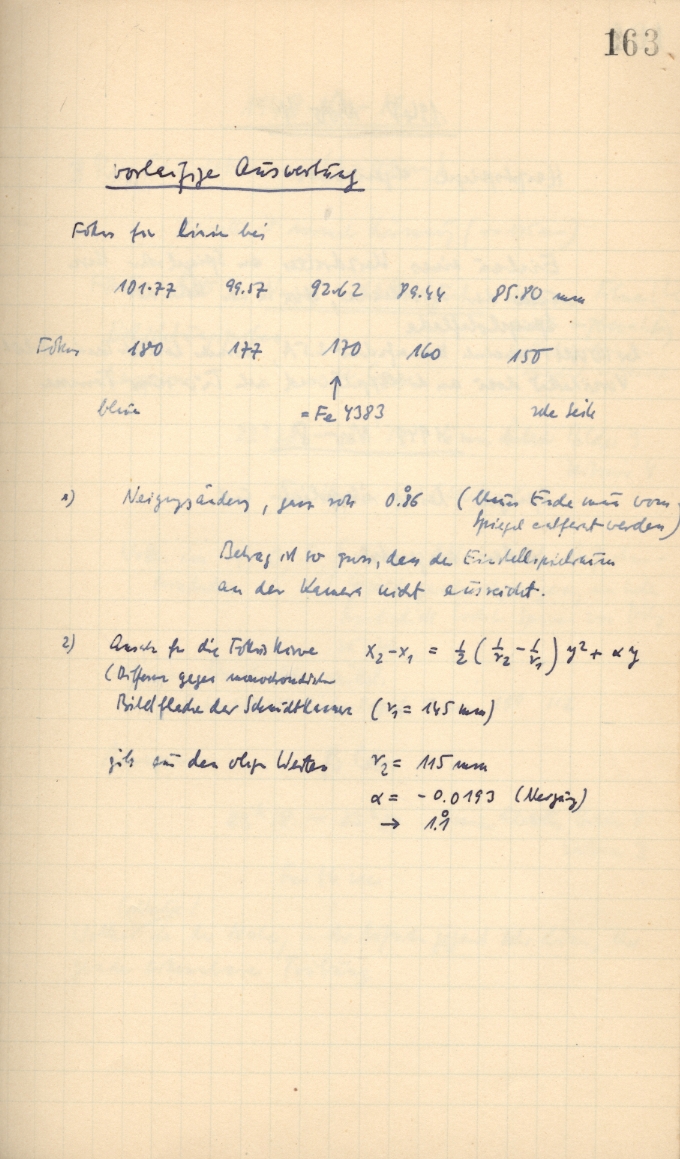 163
vorläufige Auswertung
Fokus für Linie bei
101.77 99.57 92.62 89.44 85.80 mm
Fokus 180 177 170 160 150
↑
blau = Fe 4383 rote Seite
1) Neigungsänderg, ganz von 0.°86 (blaues Ende muss vom
Spiegel entfernt werden)
Betrag ist so gross, dass der Einstellspielraum
an der Kamera nicht ausreicht.
2) Ansatz für die Fokuskurve x₂-x₁ = ½ (1/r₂ - 1/r₁) y² + α y
(Differenz gegen monochromatische
Bildfläche der Schmidtkamera (r₁ = 145 mm)
gibt aus den obigen Werten r₂ = 115 mm
α = - 0.0193 (Neigung)
→ 1.°1